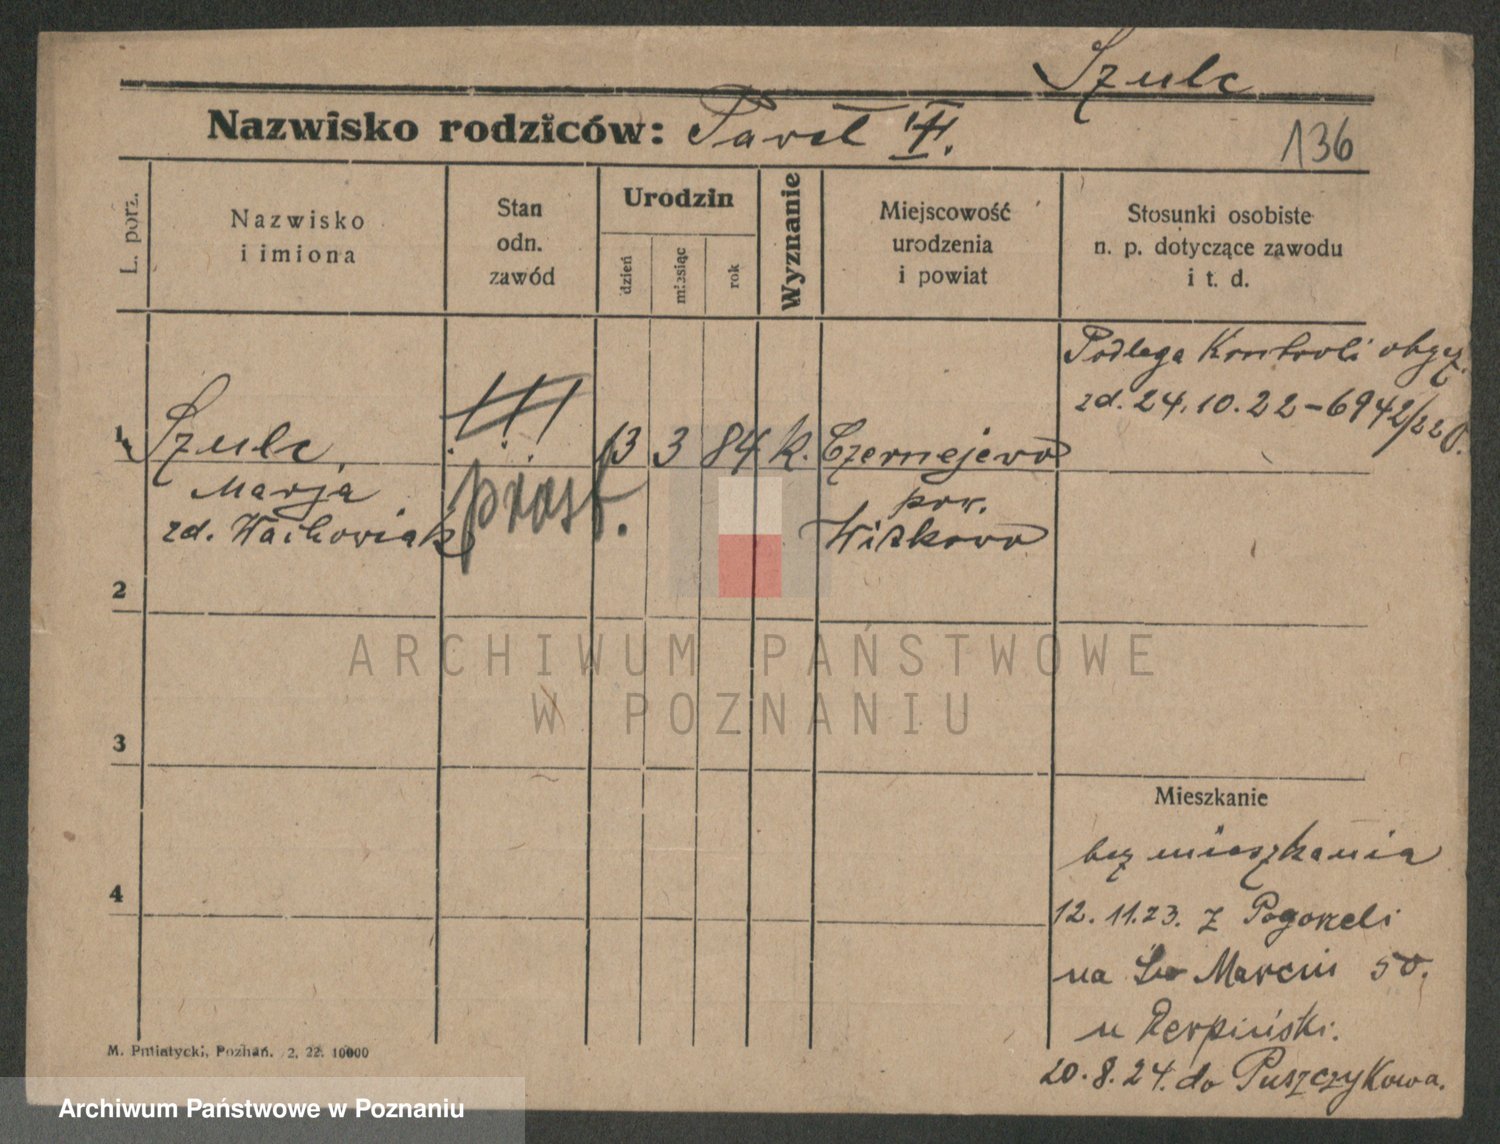 Szulc
Nazwisko rodziców: Paweł
136
L. porz.
Nazwisko
i imiona
Stan
odn.
zawód
Urodzin
dzień
miesiąc
rok
Wyznanie
Miejscowość
urodzenia
i powiat
Stosunki osobiste
n. p. dotyczące zawodu
i t. d.
Podlega Kontroli obycz.
zd. 24.10.22 - 6942/22
1 Szulc, !!! 13 3 84 k. Czernejewo
Marja
zd. Wachowiak
prost.
pow.
Witkowo
2
3
4
Mieszkanie
bez mieszkania
12.11.23. z Pogorzeli
na Św Marcin 50.
u Cierpiński.
20.8.24. do Puszczykowa.
M. Pniatycki, Poznań. 2. 22. 10000
ARCHIWUM PAŃSTWOWE
W POZNANIU
Archiwum Państwowe w Poznaniu